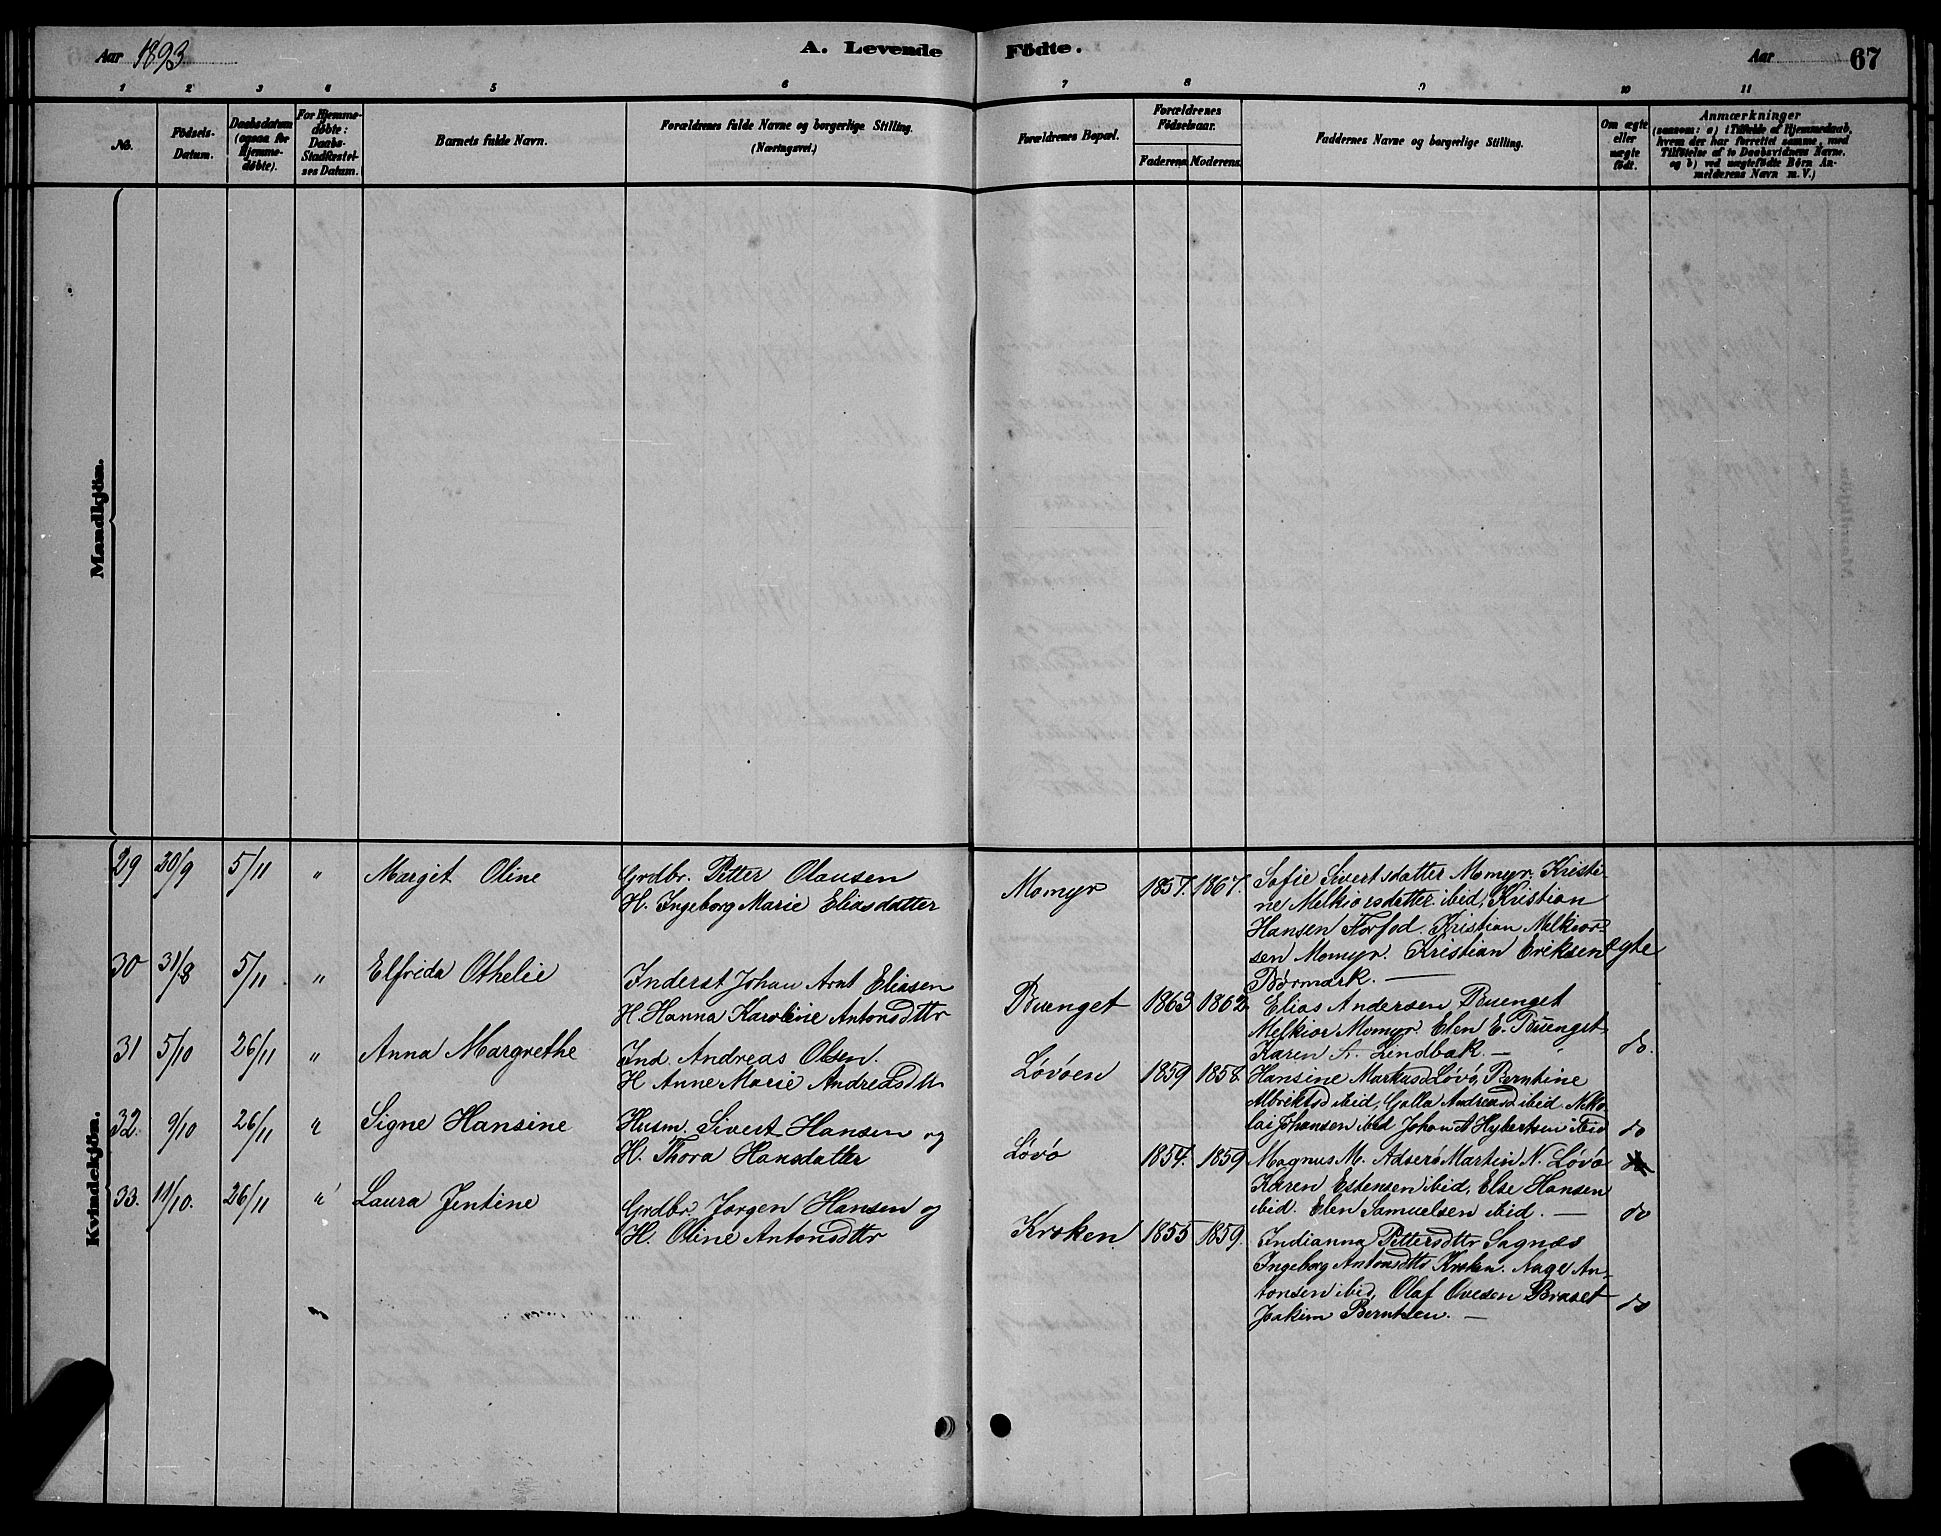 Aar 1893
A. Levende Födte.
Aar 67
1 2 3 4 5 6 7 8 9 10 11
No.
Födsels-Datum.
Daabsdatum (ogsaa for Hjemme-døbte).
For Hjemme-døbte: Daabs-Stadfæstel-ses Datum.
Barnets fulde Navn.
Forældrenes fulde Navne og borgerlige Stilling.
(Næringsvei.)
Forældrenes Bopæl.
Forældrenes Födselsaar.
Faderens. Moderens.
Faddernes Navne og borgerlige Stilling.
Om ægte eller uægte födt.
Anmærkninger
(saasom: a) i Tilfælde af Hjemmedaab,
hvem der har forrettet samme, med
Tilföielse af to Daabsvidners Navne,
og b) ved uægtefödte Børn An-
melderens Navn m. V.)
Mandkjön.
Kvindekjön.
29 30/9 5/11 " Margit Oline
Grdbr. Petter Olausen
H. Ingeborg Marie Eliasdatter
Momyr 1857. 1867.
Sofie Sivertsdatter Momyr. Kristi-
ne Melkiorsdatter ibid, Kristian
Hansen Florfod. Kristian Melkior-
sen Momyr. Kristian Eriksen
Børmark. —
ægte
30 31/8 5/11 " Elfrida Othelie
Inderst Johan Arnt Eliasen
H. Hanna Karoline Antonsdttr
Buenget 1863 1862
Elias Andersen Buenget
Melkior Momyr. Elen E. Buenget
Karen A. Lindbak. —
do.
31 5/10 26/11 " Anna Margrethe
Ind. Andreas Olsen.
H Anne Marie Andreasdtt
Løvøen 1859 1858
Hansine Markusd Løvø, Berntine
Albriktsd ibid, Golla Andreasd ibid Niko-
lai Johansen ibid Johan A Hybertsen ibid
do
32. 9/10 26/11 " Signe Hansine
Husm. Sivert Hansen og
H. Thora Hansdatter
Løvø 1854. 1859
Magnus M. Adserø Martin N. Løvø
Karen Estensen ibid, Else Hansen
ibid. Elen Samuelsen ibid. —
do
33. 11/10. 26/11 " Laura Jentine
Grdbr. Jørgen Hansen og
H. Oline Antonsdttr
Kroken 1855 1859.
Indianna Pettersdtter Sagnæs
Ingeborg Antonsdttr Kroken. Aage An-
tonsen ibid, Olaf Ovesen Braset
Joakim Berntsen. —
do